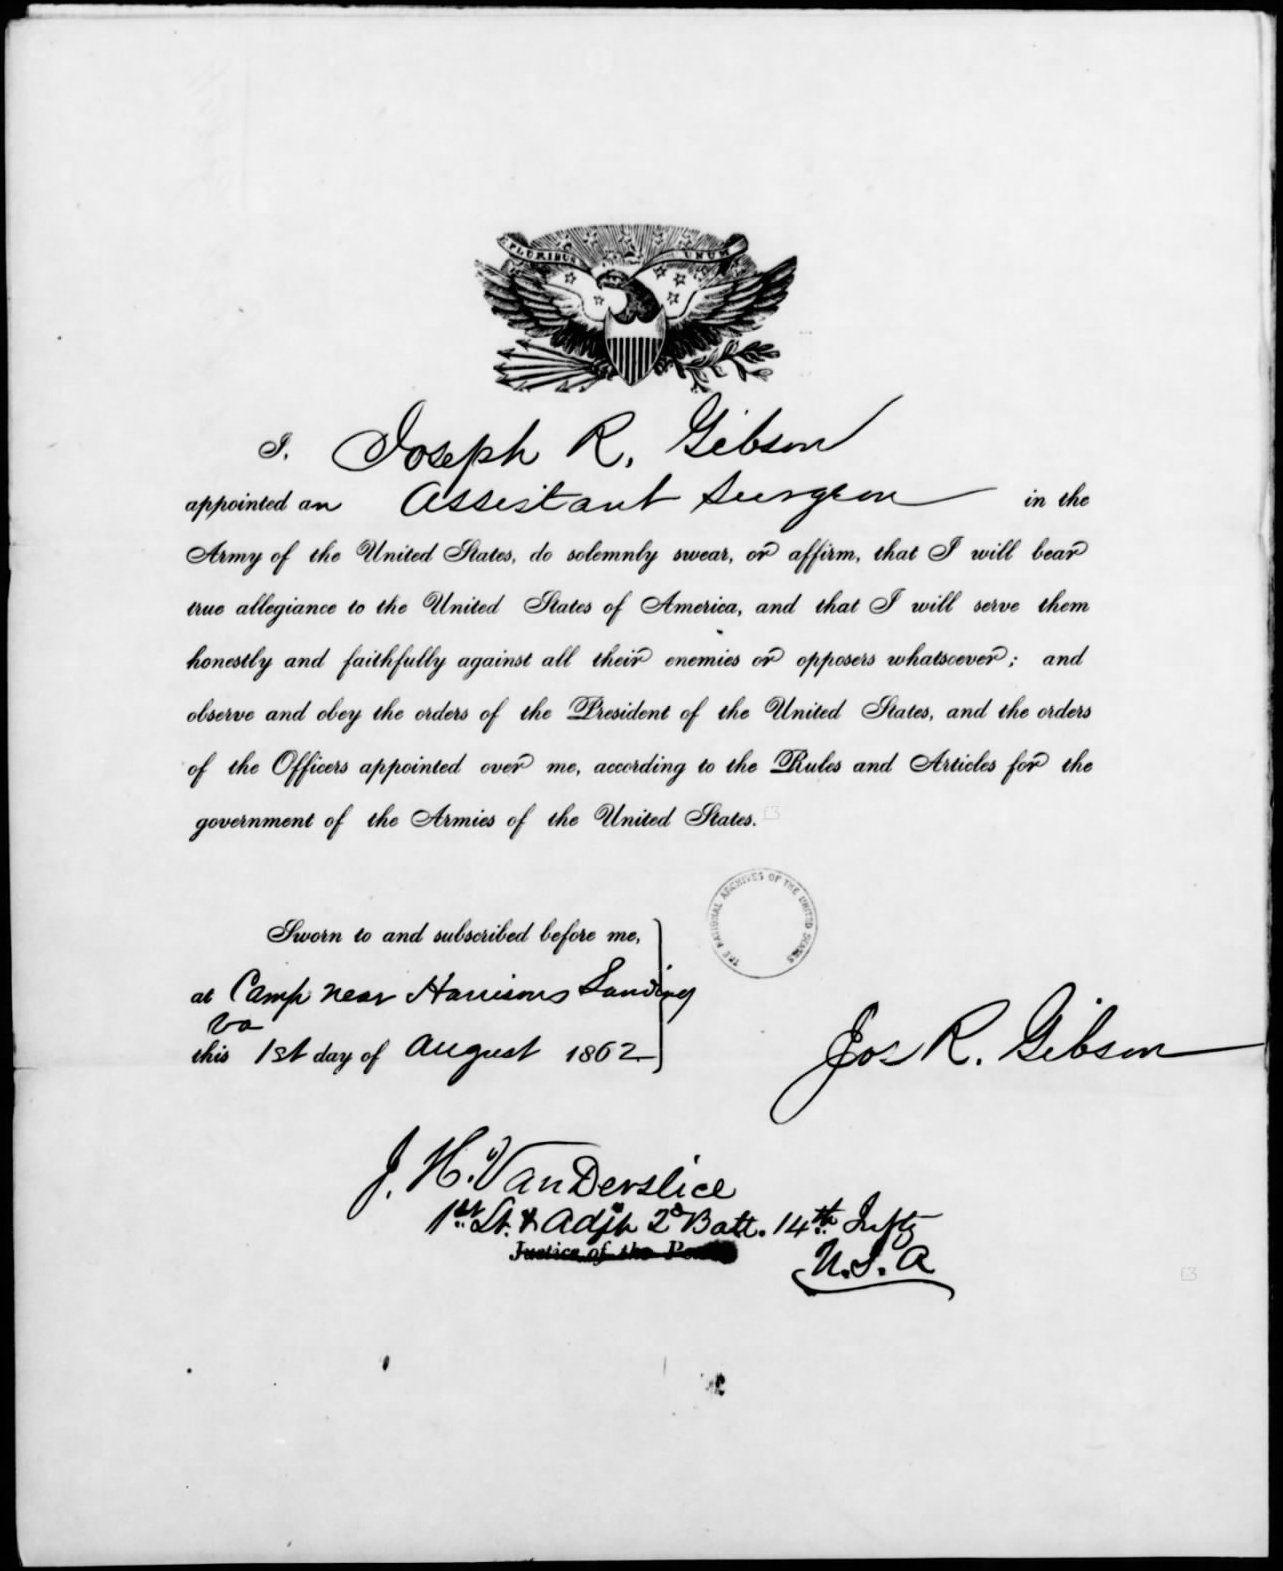 E PLURIBUS UNUM
I, Joseph R. Gibson
appointed an Assistant Surgeon in the
Army of the United States, do solemnly swear, or affirm, that I will bear
true allegiance to the United States of America, and that I will serve them
honestly and faithfully against all their enemies or opposers whatsoever; and
observe and obey the orders of the President of the United States, and the orders
of the Officers appointed over me, according to the Rules and Articles for the
government of the Armies of the United States.
THE NATIONAL ARCHIVES OF THE UNITED STATES
Sworn to and subscribed before me,
at Camp near Harrisons Landing
Va
this 1st day of August 1862
Jos R. Gibson
J. H. VanDerslice
1st Lt. & Adjt 2d Batt. 14th Infty
Justice of the Peace
U.S.A